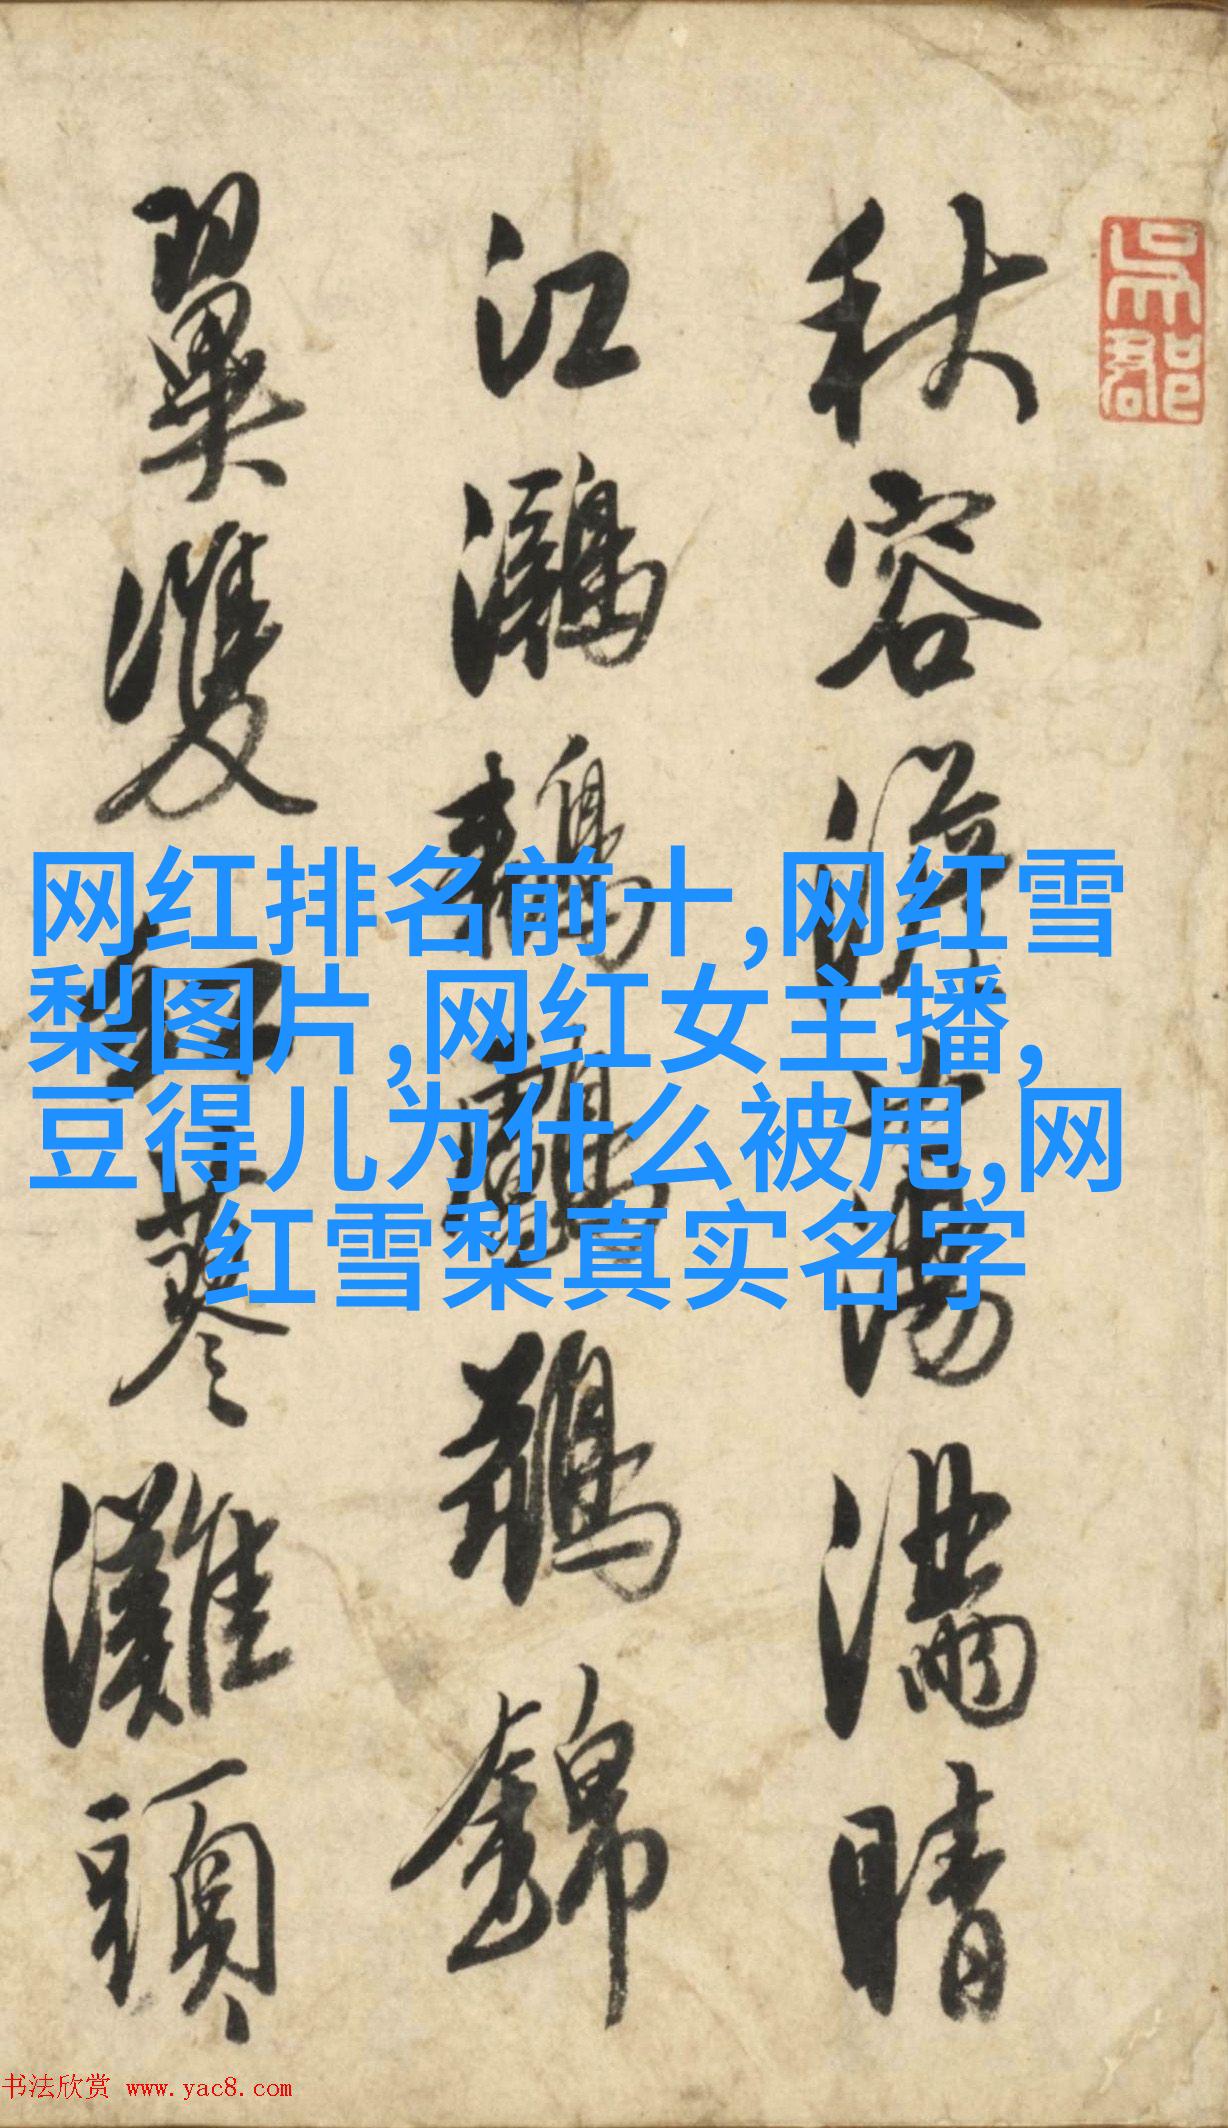 秋容澹沱滿晴
江鸂鶒鸕鶿錦
翼雙
蓼灘頭
吳郡
网红排名前十,网红雪
梨图片,网红女主播,
豆得儿为什么被甩,网
红雪梨真实名字
书法欣赏 www.yac8.com